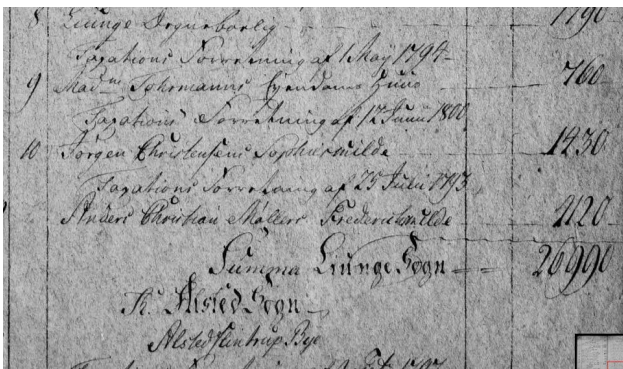 8 Liunge Degneboelig 1790
Taxations Forretning af 1 May 1794
9 Mad<sup>me</sup> Eyendoms Huus 760
Taxations Forretning af 12 Junii 1800
10 Jørgen Christensens Sophiesmilde 1430
Taxations Forretning af 25 Julii 1793
Anders Christian Møllers Frederichsmilde 2120
Summa Liunge Sogn 26990
Alsted Sogn
Alsted Flintrup Bye